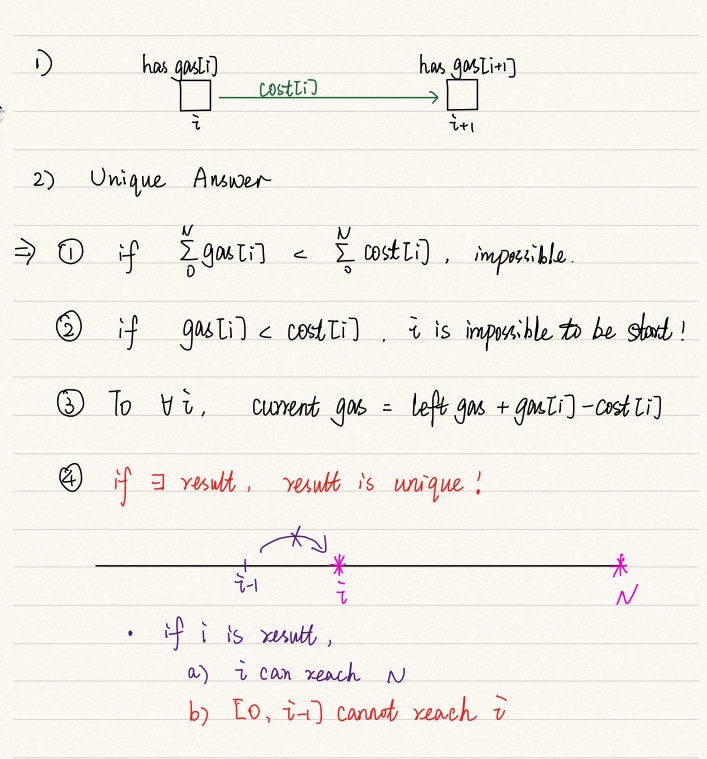 1)
has gas[i] has gas[i+1]
cost[i]
i i+1
2) Unique Answer
⇒ ① if ∑₀ᴺ gas[i] < ∑₀ᴺ cost[i], impossible.
② if gas[i] < cost[i], i is impossible to be start!
③ To ∀i, current gas = left gas + gas[i] - cost[i]
④ if ∃ result, result is unique!
i-1 i N
• if i is result,
a) i can reach N
b) [0, i-1] cannot reach i